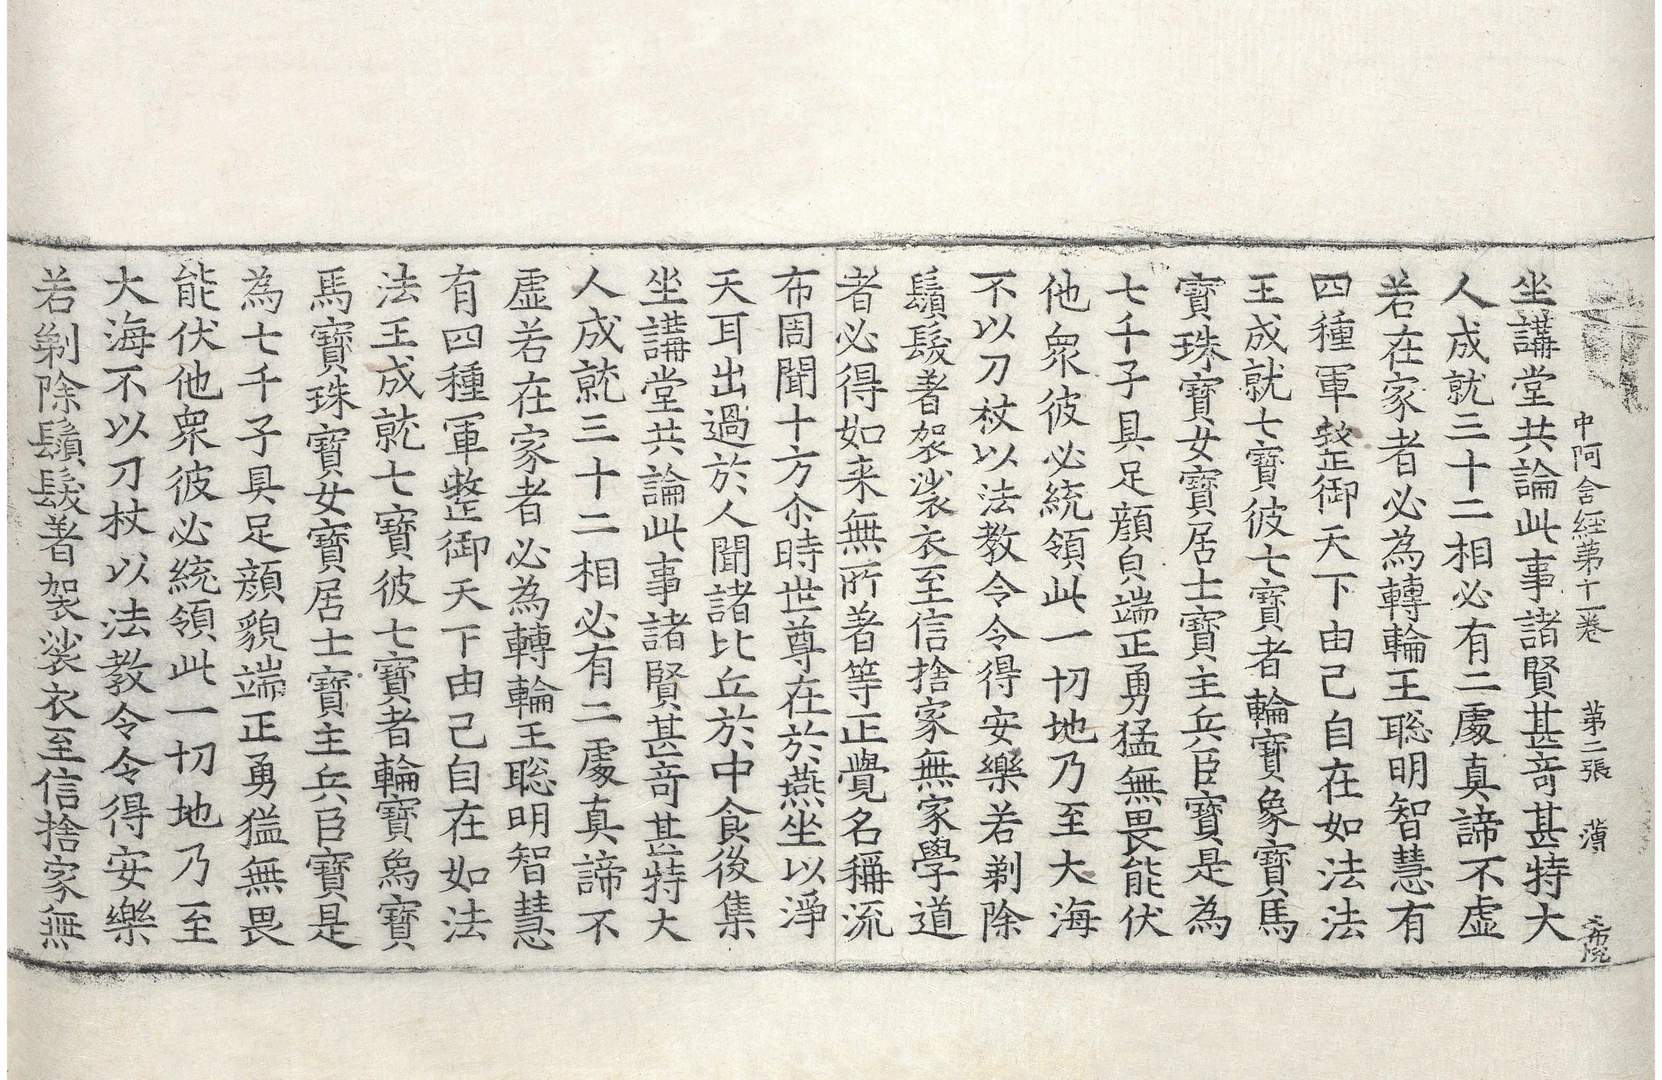 中阿含經第十一卷 第二張 薄
坐講堂共論此事諸賢甚奇甚特大
人成就三十二相必有二處真諦不虛
若在家者必為轉輪王聡明智慧有
四種軍整御天下由己自在如法法
王成就七寶彼七寶者輪寶象寶馬
寶珠寶女寶居士寶主兵臣寶是為
七千子具足顔皃端正勇猛無畏能伏
他衆彼必統領此一切地乃至大海
不以刀杖以法教令令得安樂若剃除
鬚髮著袈裟衣至信捨家無家學道
者必得如来無所著等正覺名稱流
布周聞十方尒時世尊在於燕坐以淨
天耳出過於人聞諸比丘於中食後集
坐講堂共論此事諸賢甚奇甚特大
人成就三十二相必有二處真諦不
虛若在家者必為轉輪王聡明智慧
有四種軍整御天下由己自在如法
法王成就七寶彼七寶者輪寶象寶
馬寶珠寶女寶居士寶主兵臣寶是
為七千子具足顔貌端正勇猛無畏
能伏他衆彼必統領此一切地乃至
大海不以刀杖以法教令令得安樂
若剃除鬚髮著袈裟衣至信捨家無